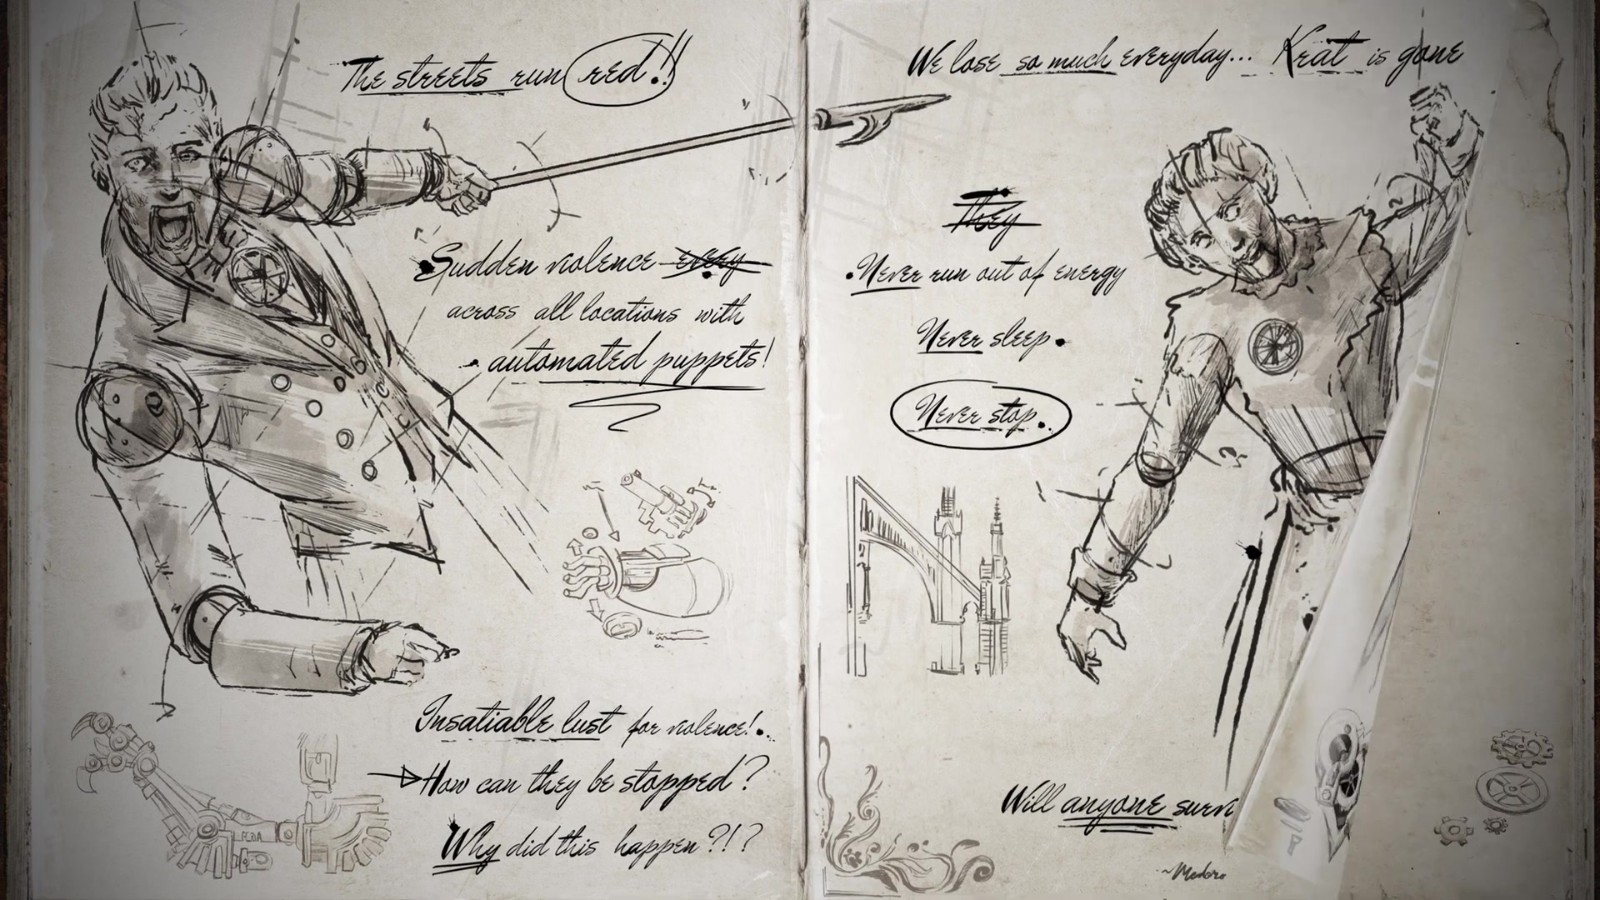 The streets run red!!
Sudden violence every
across all locations with
automated puppets!
Insatiable lust for violence!
How can they be stopped?
Why did this happen?!?
We lose so much everyday... Krat is gone
They
Never run out of energy
Never sleep.
Never stop.
Will anyone surv